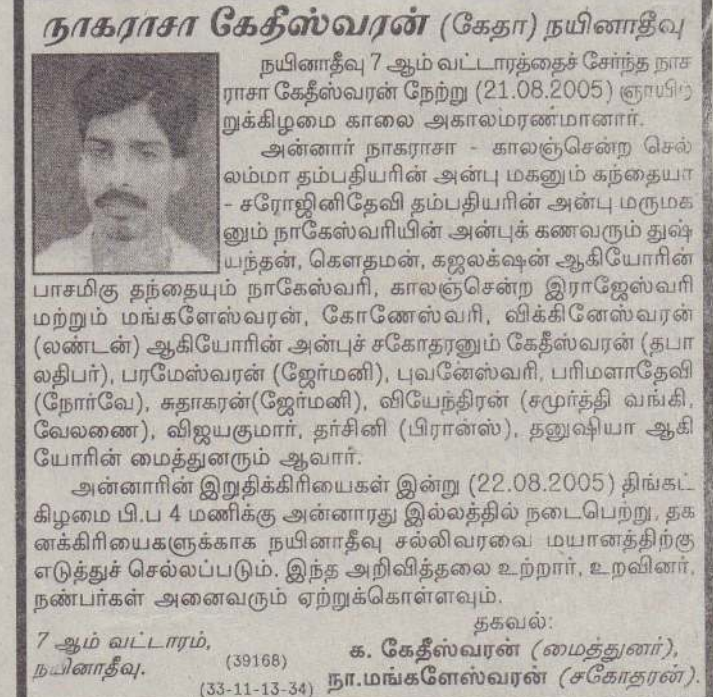 நாகராசா கேதீஸ்வரன் (கேதா) நயினாதீவு
நயினாதீவு 7 ஆம் வட்டாரத்தைச் சேர்ந்த நாக
ராசா கேதீஸ்வரன் நேற்று (21.08.2005) ஞாயிற்
றுக்கிழமை காலை அகாலமரணமானார்.
அன்னார் நாகராசா - காலஞ்சென்ற செல்
லம்மா தம்பதியரின் அன்பு மகனும் கந்தையா
- சரோஜினிதேவி தம்பதியரின் அன்பு மருமக
னும் நாகேஸ்வரியின் அன்புக் கணவரும் துஷ்
யந்தன், கௌதமன், கஜலக்ஷன் ஆகியோரின்
பாசமிகு தந்தையும் நாகேஸ்வரி, காலஞ்சென்ற இராஜேஸ்வரி
மற்றும் மங்களேஸ்வரன், கோணேஸ்வரி, விக்கினேஸ்வரன்
(லண்டன்) ஆகியோரின் அன்புச் சகோதரனும் கேதீஸ்வரன் (தபா
லதிபர்), பரமேஸ்வரன் (ஜேர்மனி), புவனேஸ்வரி, பரிமளாதேவி
(நோர்வே), சுதாகரன்(ஜேர்மனி), வியேந்திரன் (சமுர்த்தி வங்கி,
வேலணை), விஜயகுமார், தர்சினி (பிரான்ஸ்), தனுஷியா ஆகி
யோரின் மைத்துனரும் ஆவார்.
அன்னாரின் இறுதிக்கிரியைகள் இன்று (22.08.2005) திங்கட்
கிழமை பி.ப 4 மணிக்கு அன்னாரது இல்லத்தில் நடைபெற்று, தக
னக்கிரியைகளுக்காக நயினாதீவு சல்லிவரவை மயானத்திற்கு
எடுத்துச் செல்லப்படும். இந்த அறிவித்தலை உற்றார், உறவினர்,
நண்பர்கள் அனைவரும் ஏற்றுக்கொள்ளவும்.
தகவல்:
7 ஆம் வட்டாரம்,
நயினாதீவு.
(39168)
(33-11-13-34)
க. கேதீஸ்வரன் (மைத்துனர்),
நா.மங்களேஸ்வரன் (சகோதரன்).